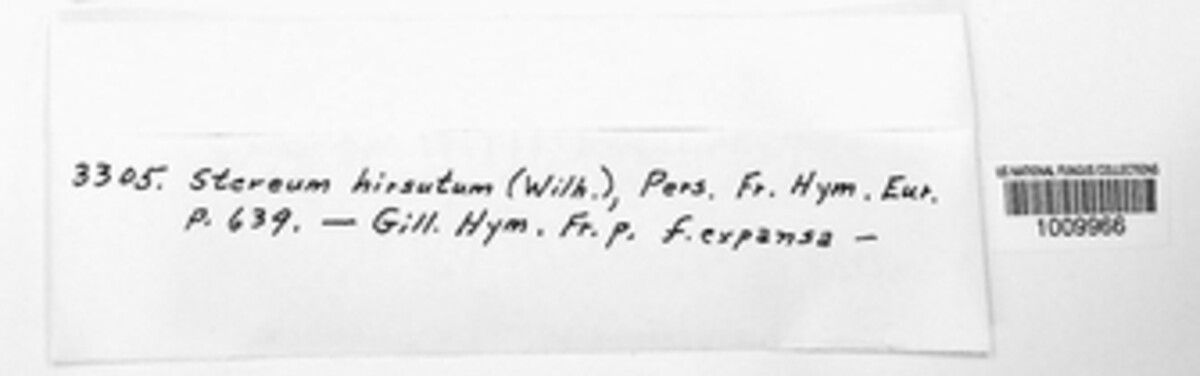 3305. Stereum hirsutum (Wilh.), Pers. Fr. Hym. Eur.
p. 639. — Gill. Hym. Fr. p. f. expansa —
US NATIONAL FUNGUS COLLECTIONS
1009966